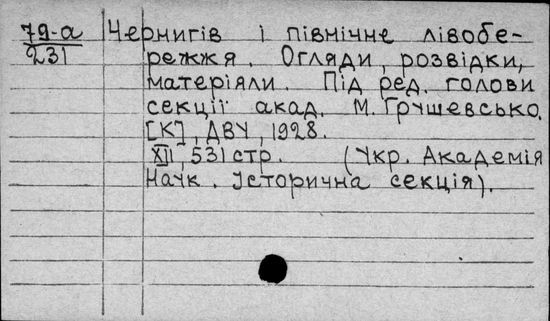 79-а
231
Чернигів і північне лівобе-
режжя. Огляди, розвідки,
матеріяли. Під ред. голови
секції акад. М. Грушевсько.
[К], ДВУ, 1928.
XII, 531 стр. (Укр. Академія
Наук. Історична секція).